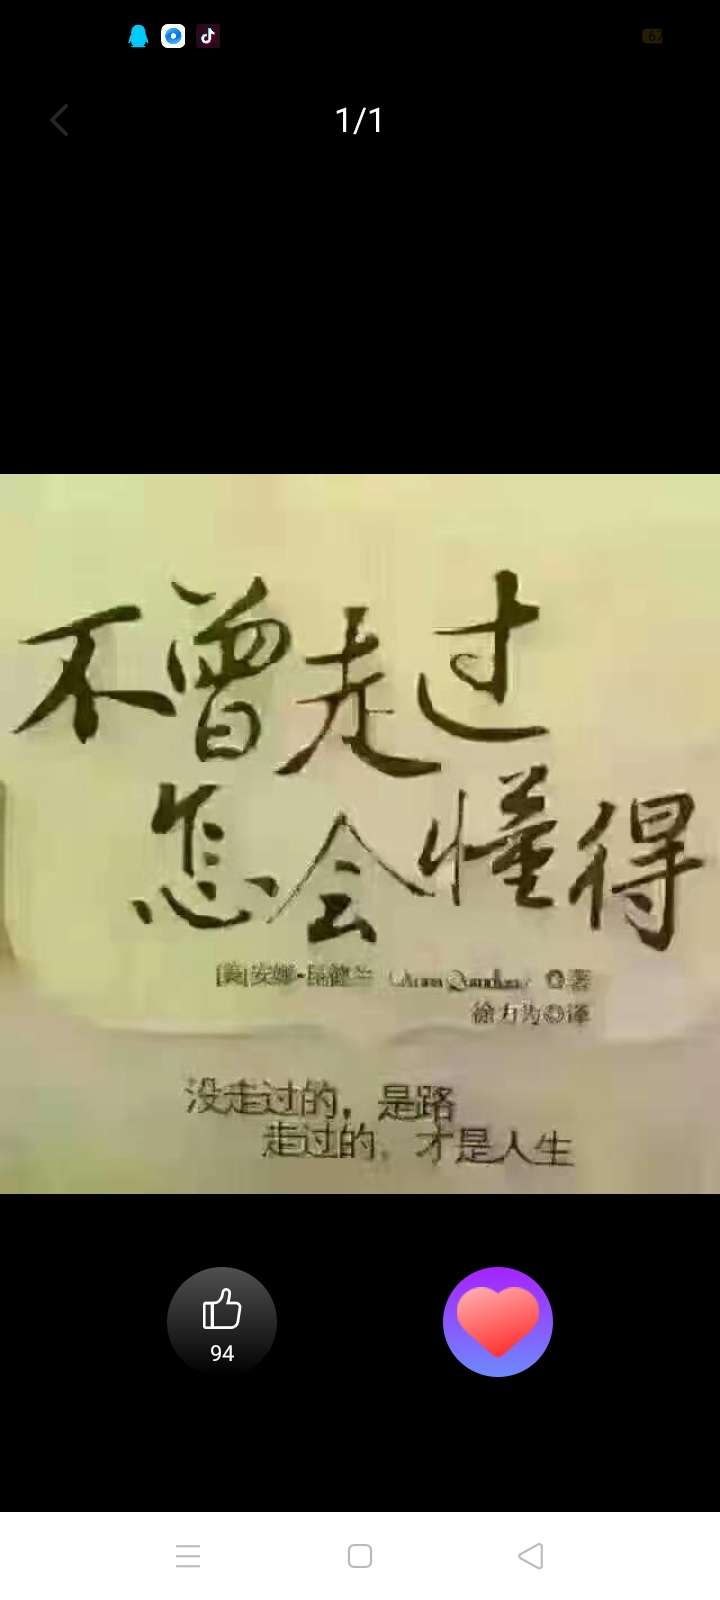 1/1
不曾走过
怎会懂得
[美]安娜·昆德兰 Anna Quindlen ◎著
译
没走过的，是路
走过的，才是人生
94